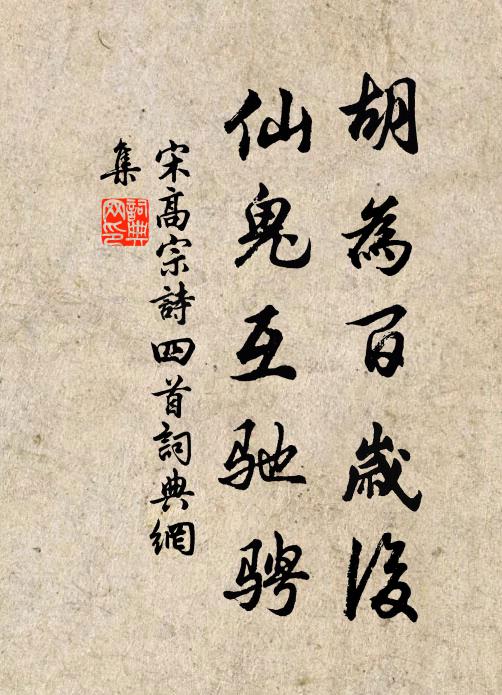 胡為百歲後
仙鬼互馳騁
宋高宗詩四首詞典網
集
詞典網印